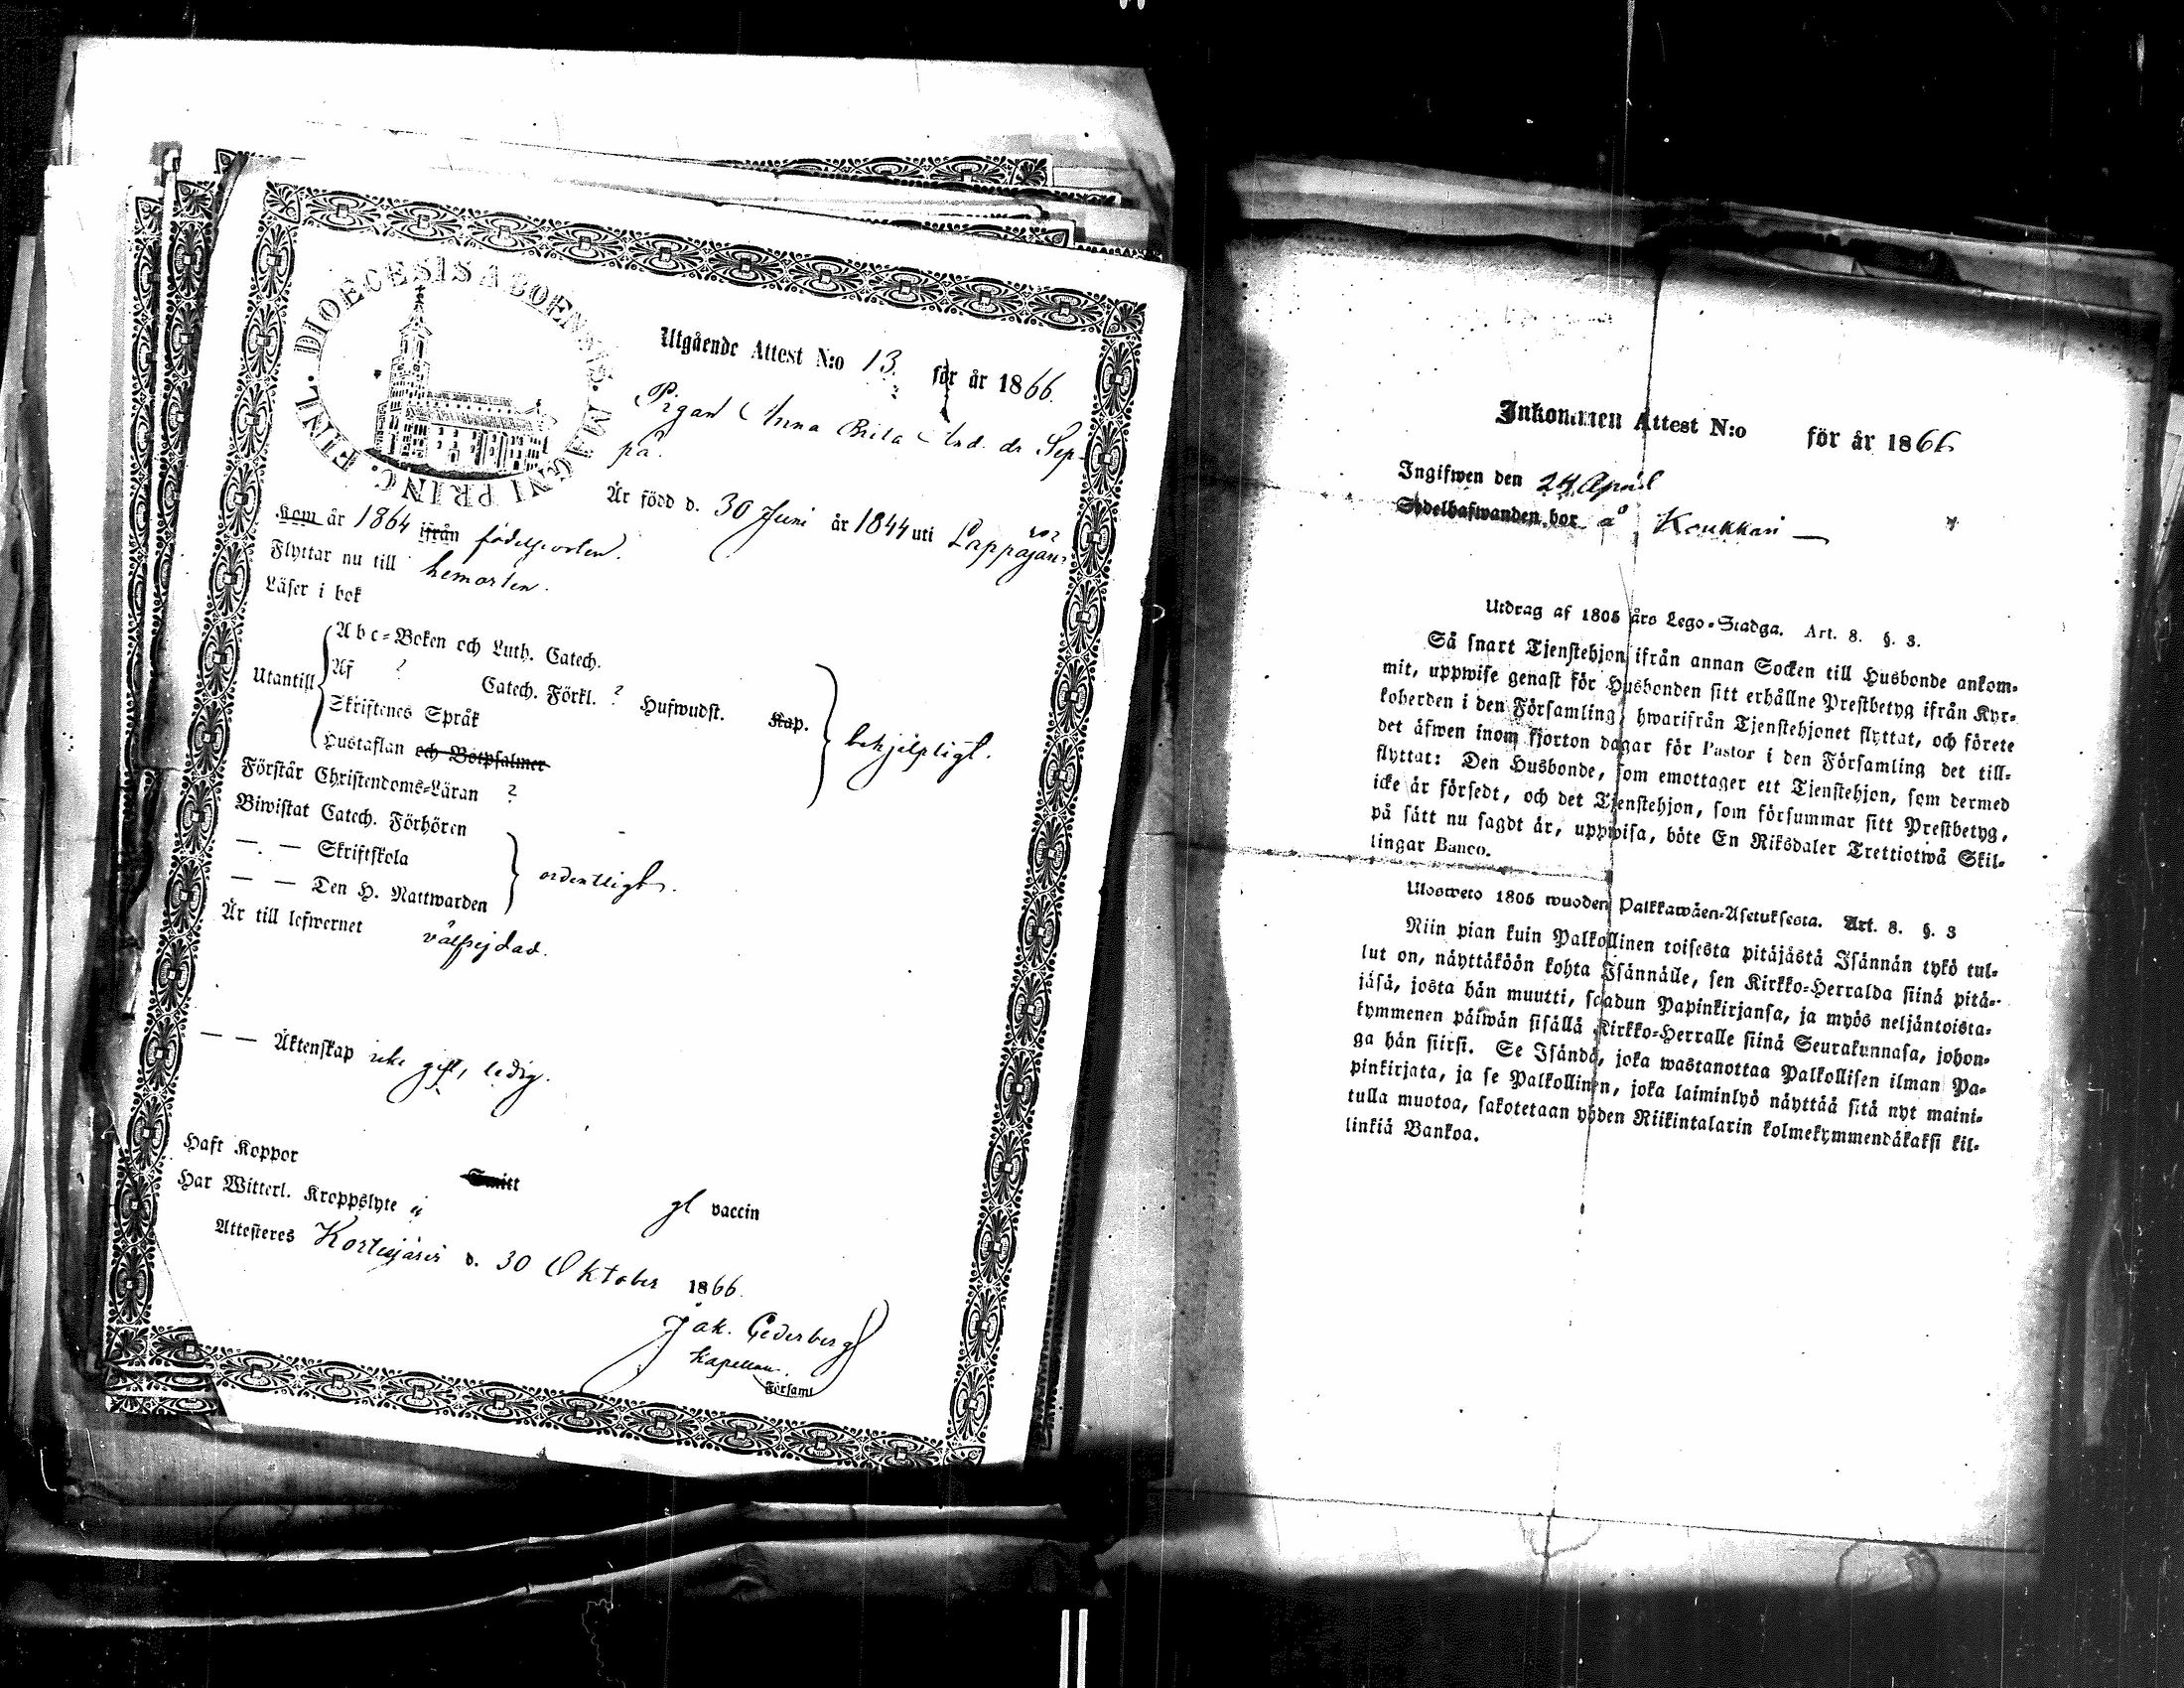 DIOECESIS ABOENSIS. MAGNI PRINC. FINL.
Utgående Attest N:o 13. för år 1866.
Pigan Anna Brita And. dr Sep-
pä.
Är född d. 30 Juni år 1844 uti Lappajär-
Kom år 1864 ifrån födelseorten.
Flyttar nu till hemorten.
Läser i bok
Utantill
Abc-Boken och Luth. Catech.
Af ? Catech. Förkl. ? Hufwudst. Kap.
Skriftenes Språk
Hustaflan och Botpsalmer
behjelpligt.
Förstår Christendoms-Läran ?
Biwistat Catech. Förhören
— . — Skriftskola
— — Den H. Nattwarden
ordentligt.
Är till lefwernet välfrejdad.
— — Äktenskap icke gift, ledig.
Haft Koppor Smitt gl vaccin
Har Witterl. Kroppslyte "
Attesteres Kortesjärvi d. 30 Oktober 1866.
Jak. Cederberg
Kapellan.
Församl
Inkommen Attest N:o för år 1866
Ingifwen den 24 April
Sedelhafwanden bor å Koukkari —
Utdrag af 1805 års Lego-Stadga. Art. 8. §. 3.
Så snart Tjenstehjon ifrån annan Socken till Husbonde ankom-
mit, uppwise genast för Husbonden sitt erhållne Prestbetyg ifrån Kyr-
koherden i den Församling, hwarifrån Tjenstehjonet flyttat, och förete
det äfwen inom fjorton dagar för Pastor i den Församling det till-
flyttat: Den Husbonde, som emottager ett Tjenstehjon, som dermed
icke är försedt, och det Tjenstehjon, som försummar sitt Prestbetyg,
på sätt nu sagdt är, uppwisa, böte En Riksdaler Trettiotwå Skil-
lingar Banco.
Ulosweto 1805 wuoden Palkkawäen-Asetuksesta. Art. 8. §. 3
Niin pian kuin Palkollinen toisesta pitäjästä Isännän tykö tul-
lut on, näyttäköön kohta Isännälle, sen Kirkko-Herralda siinä pitä-
jäsä, josta hän muutti, saadun Papinkirjansa, ja myös neljäntoista-
kymmenen päiwän sisällä Kirkko-Herralle siinä Seurakunnasa, johon-
ga hän siirsi. Se Isändä, joka wastanottaa Palkollisen ilman Pa-
pinkirjata, ja se Palkollinen, joka laiminlyö näyttää sitä nyt maini-
tulla muotoa, sakotetaan yhden Riikintalarin kolmekymmendäkaksi kil-
linkiä Bankoa.